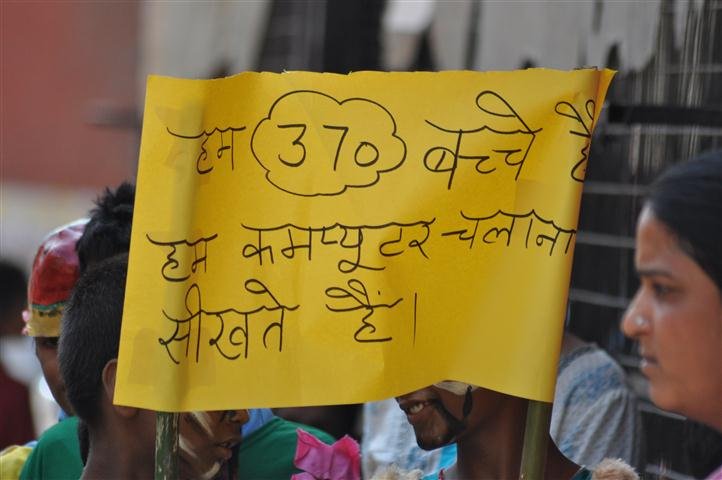 हम 370 बच्चे हैं
हम कमप्यूटर चलाना
सीखते हैं।